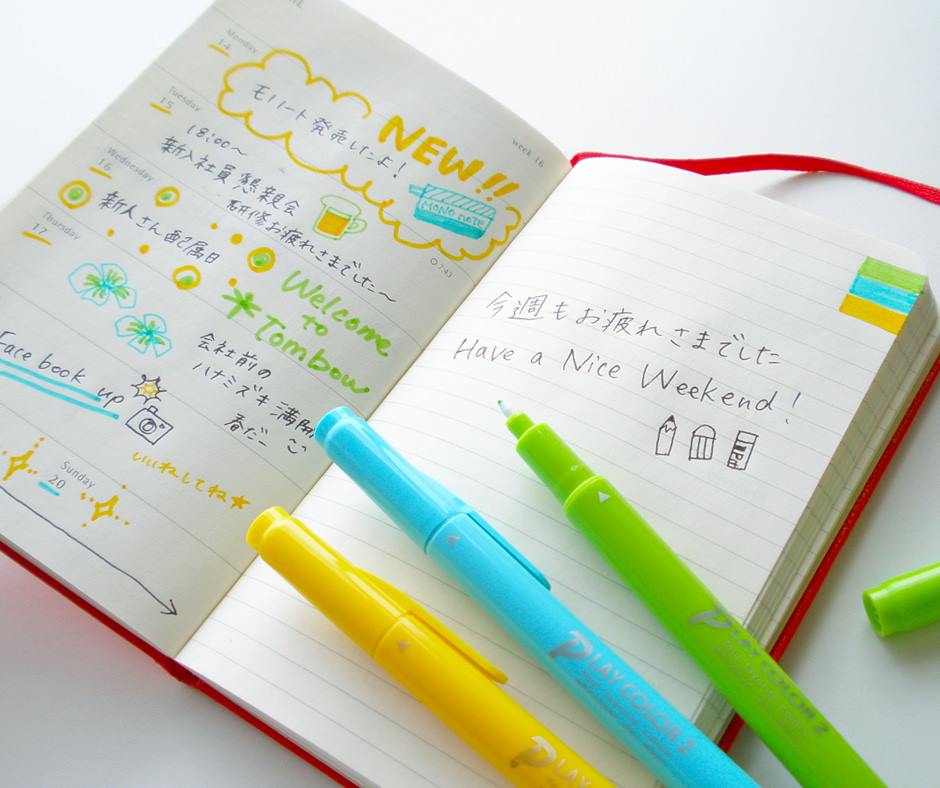 Monday
14
モノノート発売したよ!
NEW!!
week 16
MONO note
Tuesday
15
18:00〜
新入社員懇親会
研修お疲れさまでした〜
Wednesday
16
新人さん配属日
Thursday
17
Welcome
to
Tombow
会社前の
ハナミズキ満開
春だー
Face book up
いいねしてね★
Sunday
20
今週もお疲れさまでした
Have a Nice Weekend!
PLAY COLOR 2
PLAY COLOR 2
PLAY